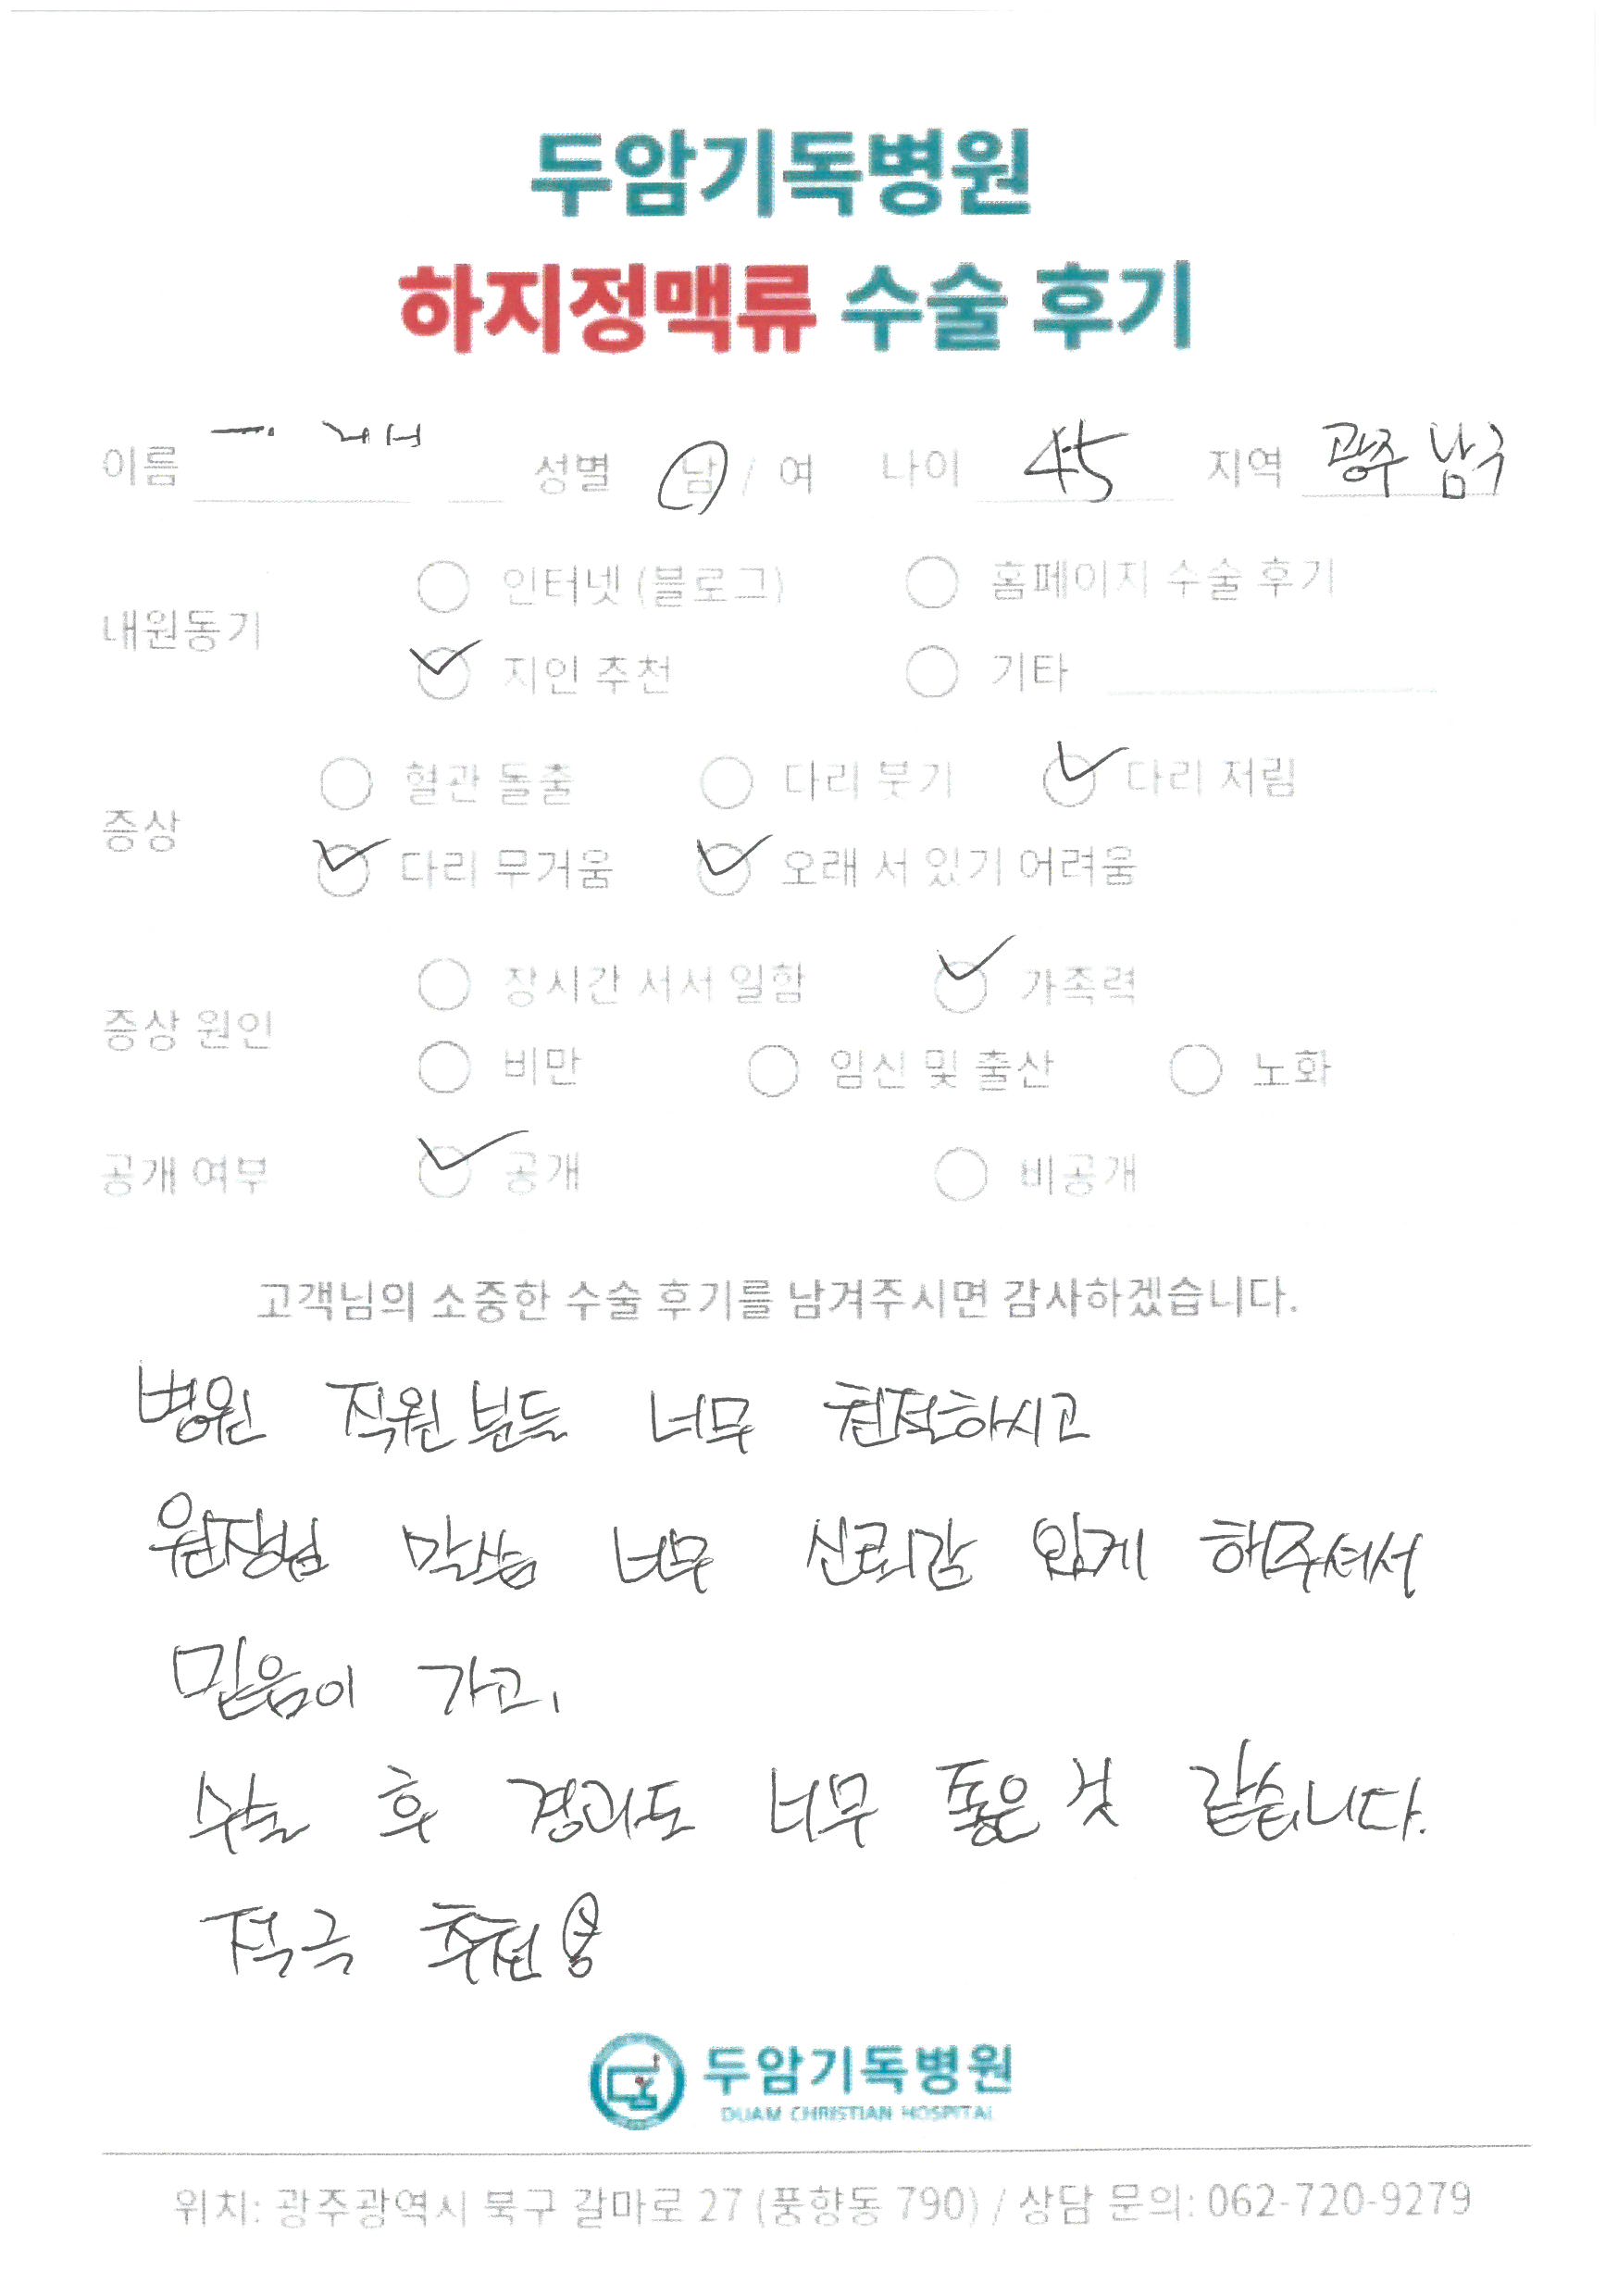 두암기독병원
하지정맥류 수술 후기
이름 성별 남 / 여 나이 45 지역 광주 남구
내원동기 인터넷 (블로그) 홈페이지 수술 후기
지인 추천 기타
증상 혈관 돌출 다리 붓기 다리 저림
다리 무거움 오래 서 있기 어려움
증상 원인 장시간 서서 일함 가족력
비만 임신 및 출산 노화
공개 여부 공개 비공개
고객님의 소중한 수술 후기를 남겨주시면 감사하겠습니다.
병원 직원분들 너무 친절하시고
원장님 말씀 너무 신뢰감 있게 해주셔서
믿음이 가고,
수술 후 경과도 너무 좋은 것 같습니다.
적극 추천
두암기독병원
DUAM CHRISTIAN HOSPITAL
위치: 광주광역시 북구 갈마로 27 (풍향동 790) / 상담 문의: 062-720-9279